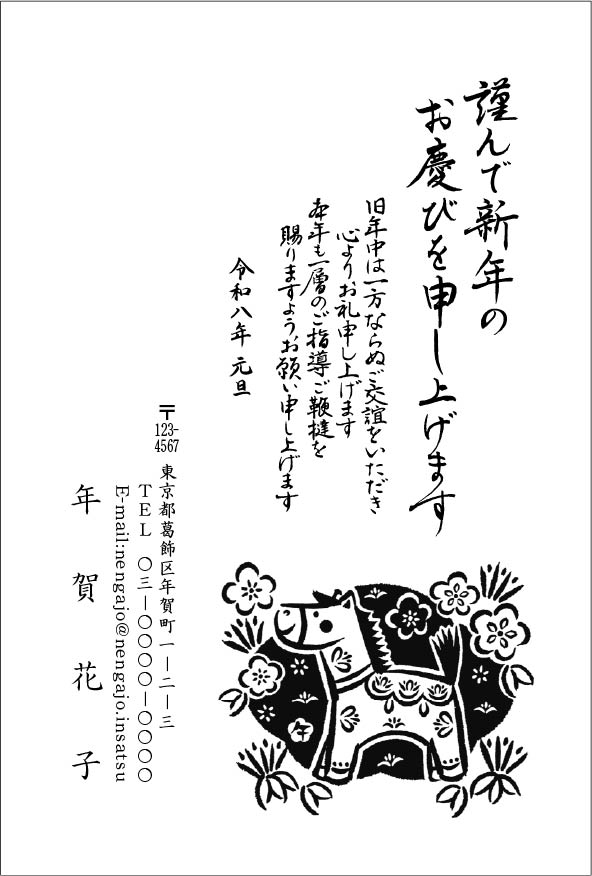 謹んで新年の
お慶びを申し上げます
旧年中は一方ならぬご交誼をいただき
心よりお礼申し上げます
本年も一層のご指導ご鞭撻を
賜りますようお願い申し上げます
令和八年 元旦
〒123-4567
東京都葛飾区年賀町一―二―三
TEL 〇三―〇〇〇〇―〇〇〇〇
E-mail:nengajo@nengajo.insatsu
年賀花子
午